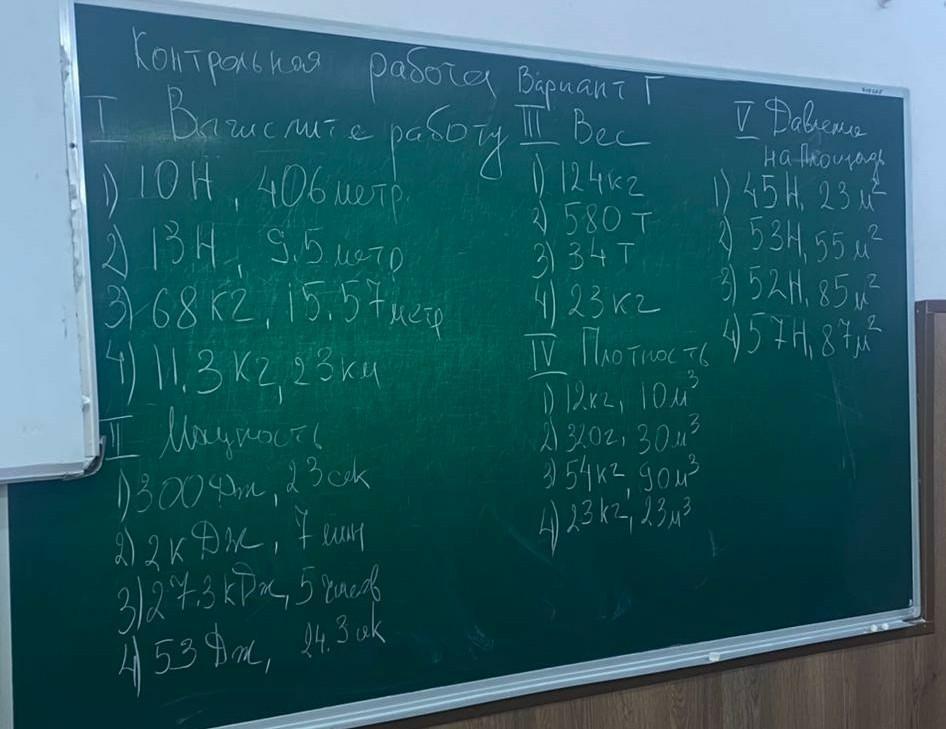 Контрольная работа Вариант Г
I Вычислите работу
1) 10Н, 406 метр.
2) 13Н, 9.5 метр
3) 68кг, 15.57 метр
4) 11.3 кг, 23 км
II Мощность
1) 300 Дж, 23 сек
2) 2 кДж, 7 мин
3) 27.3 кДж, 5 часов
4) 53 Дж, 24.3 сек
III Вес
1) 124кг
2) 580 т
3) 34 т
4) 23 кг
IV Плотность
1) 12кг, 10м³
2) 320г, 30м³
3) 54кг, 90м³
4) 23кг, 23м³
V Давление
на площадь
1) 45Н, 23 м²
2) 53Н, 55 м²
3) 52Н, 85м²
4) 57Н, 87м²